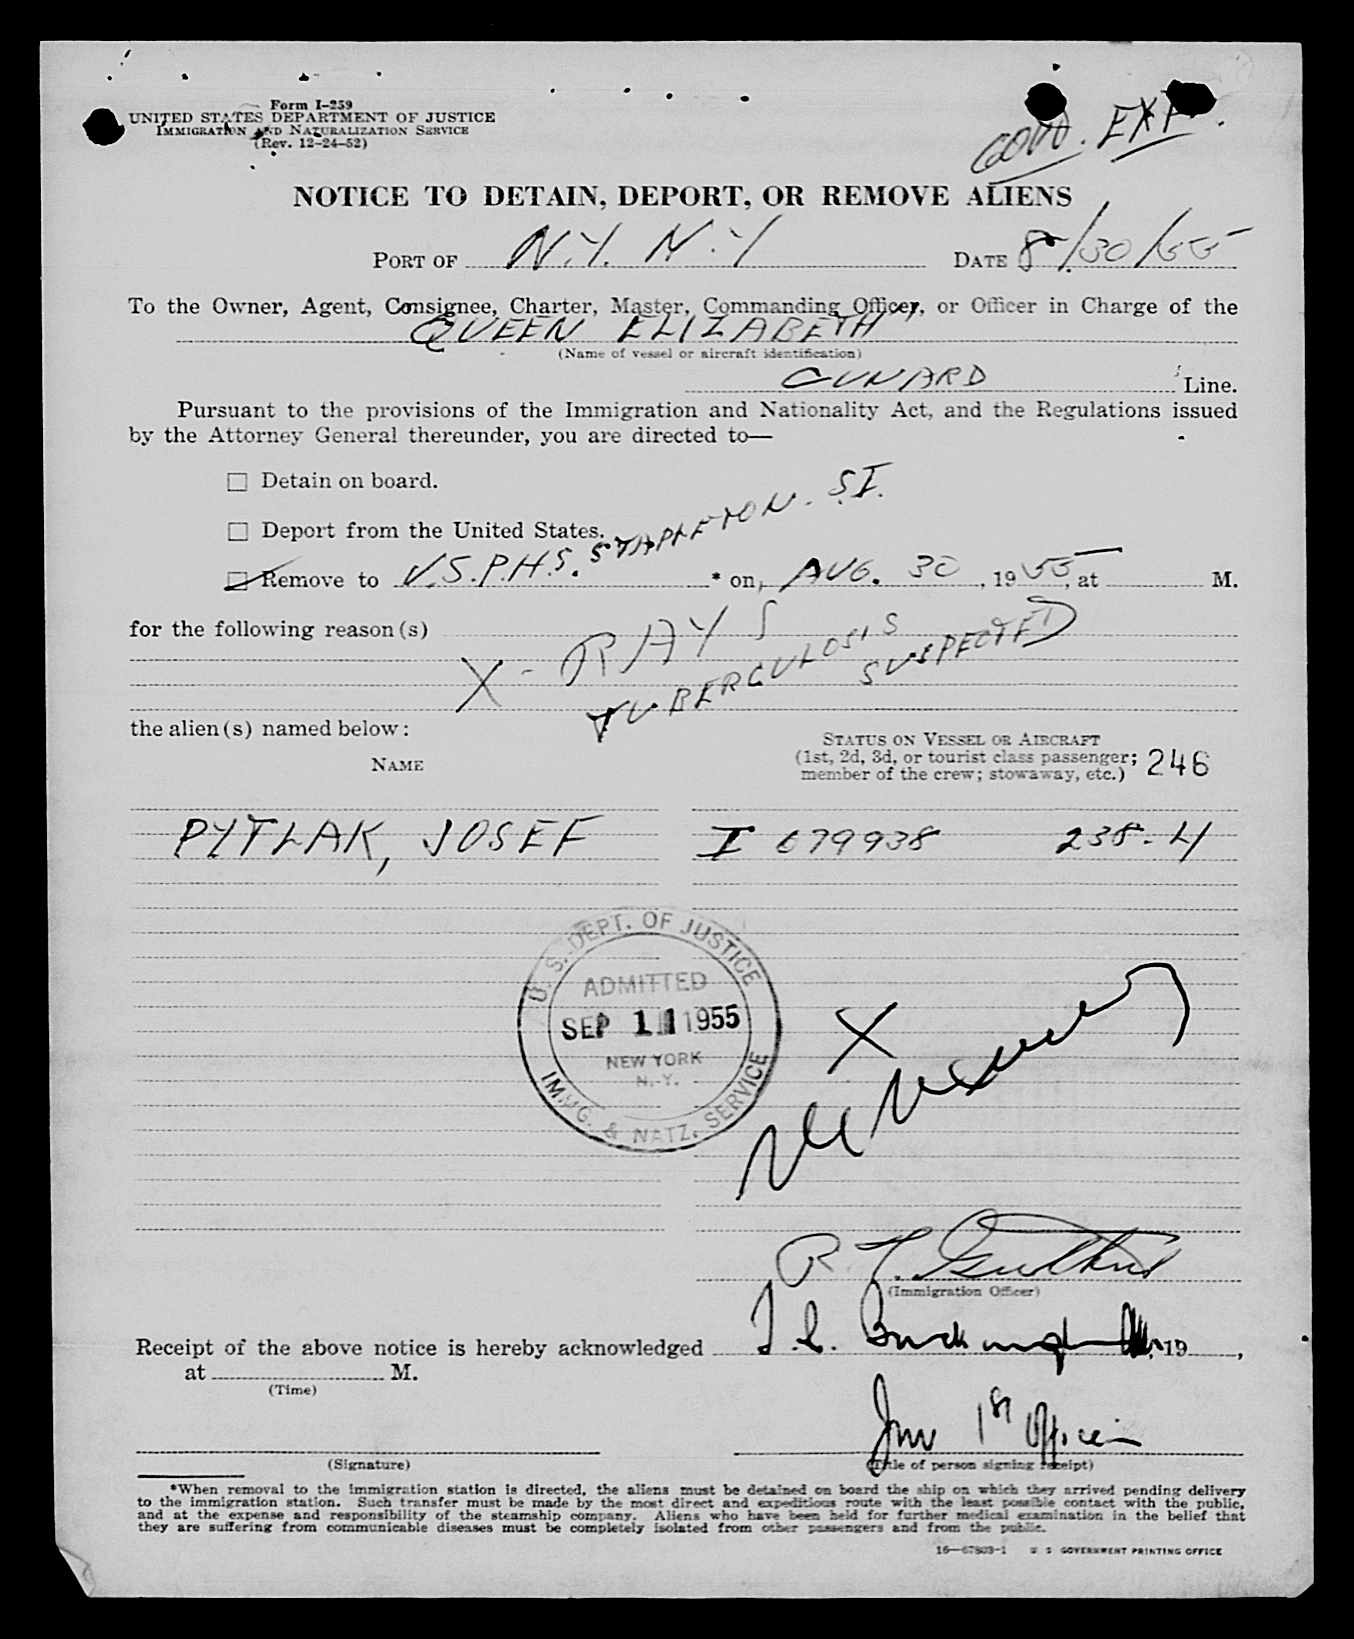 Form I-259
UNITED STATES DEPARTMENT OF JUSTICE
IMMIGRATION AND NATURALIZATION SERVICE
(Rev. 12-24-52)
GOVT. EXP.
NOTICE TO DETAIN, DEPORT, OR REMOVE ALIENS
PORT OF N.Y. N.Y DATE 8/30/55
To the Owner, Agent, Consignee, Charter, Master, Commanding Officer, or Officer in Charge of the
QUEEN ELIZABETH
(Name of vessel or aircraft identification)
CUNARD Line.
Pursuant to the provisions of the Immigration and Nationality Act, and the Regulations issued
by the Attorney General thereunder, you are directed to—
Detain on board.
Deport from the United States.
Remove to U.S.P.H.S. STAPLETON. S.I. * on, AUG. 30, 1955, at M.
for the following reason(s)
X-RAYS
TUBERCULOSIS
SUSPECTED
the alien(s) named below:
NAME
STATUS ON VESSEL OR AIRCRAFT
(1st, 2d, 3d, or tourist class passenger;
member of the crew; stowaway, etc.) 246
PYTLAK, JOSEF I 679938 238-4
U. S. DEPT. OF JUSTICE
ADMITTED
SEP 11 1955
NEW YORK
N.Y.
IMMIG. & NATZ. SERVICE
X
(Immigration Officer)
Receipt of the above notice is hereby acknowledged , 19 ,
at M.
(Time)
Jnr 1st Officer
(Signature)
(Title of person signing receipt)
*When removal to the immigration station is directed, the aliens must be detained on board the ship on which they arrived pending delivery
to the immigration station. Such transfer must be made by the most direct and expeditious route with the least possible contact with the public,
and at the expense and responsibility of the steamship company. Aliens who have been held for further medical examination in the belief that
they are suffering from communicable diseases must be completely isolated from other passengers and from the public.
16—67803-1 U S GOVERNMENT PRINTING OFFICE